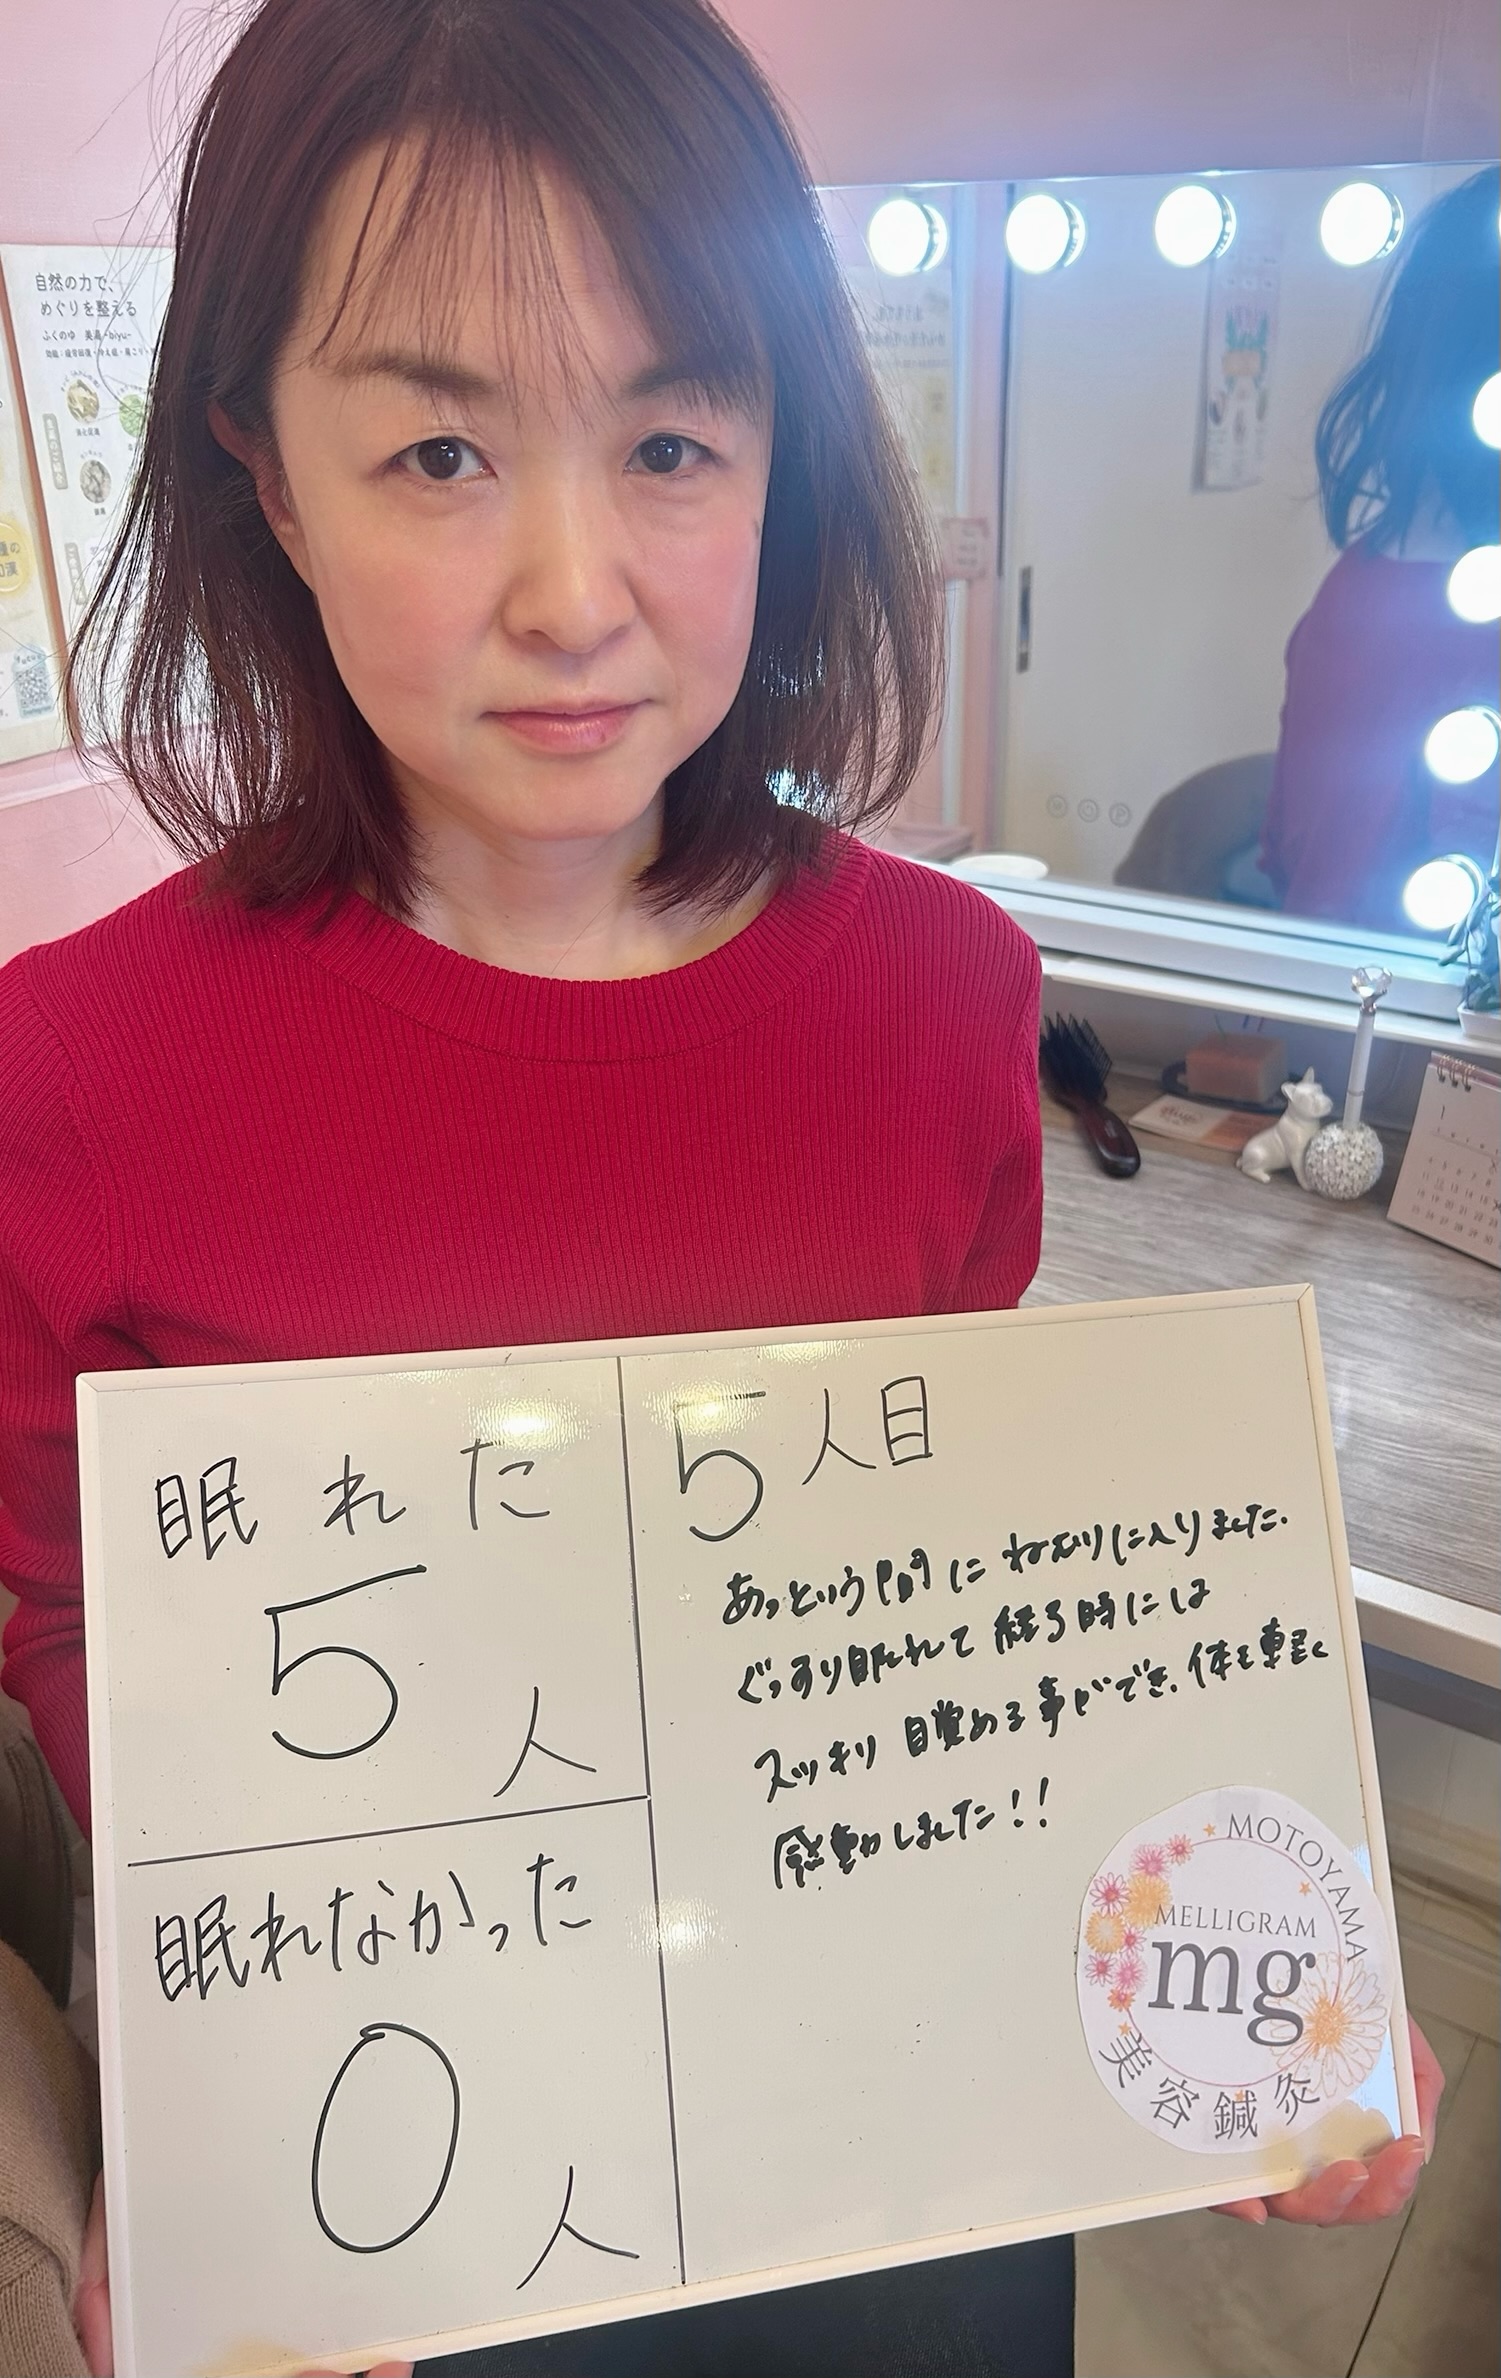 自然の力で、
めぐりを整える
ふくのゆ 美湯-biyu-
眠れた
5人
眠れなかった
0人
5人目
あっという間にねむりに入りました.
ぐっすり眠れれて終る時には
スッキリ目覚める事ができ、体も軽く
感動しました!!
MOTOYAMA
MELLIGRAM
mg
美容鍼灸